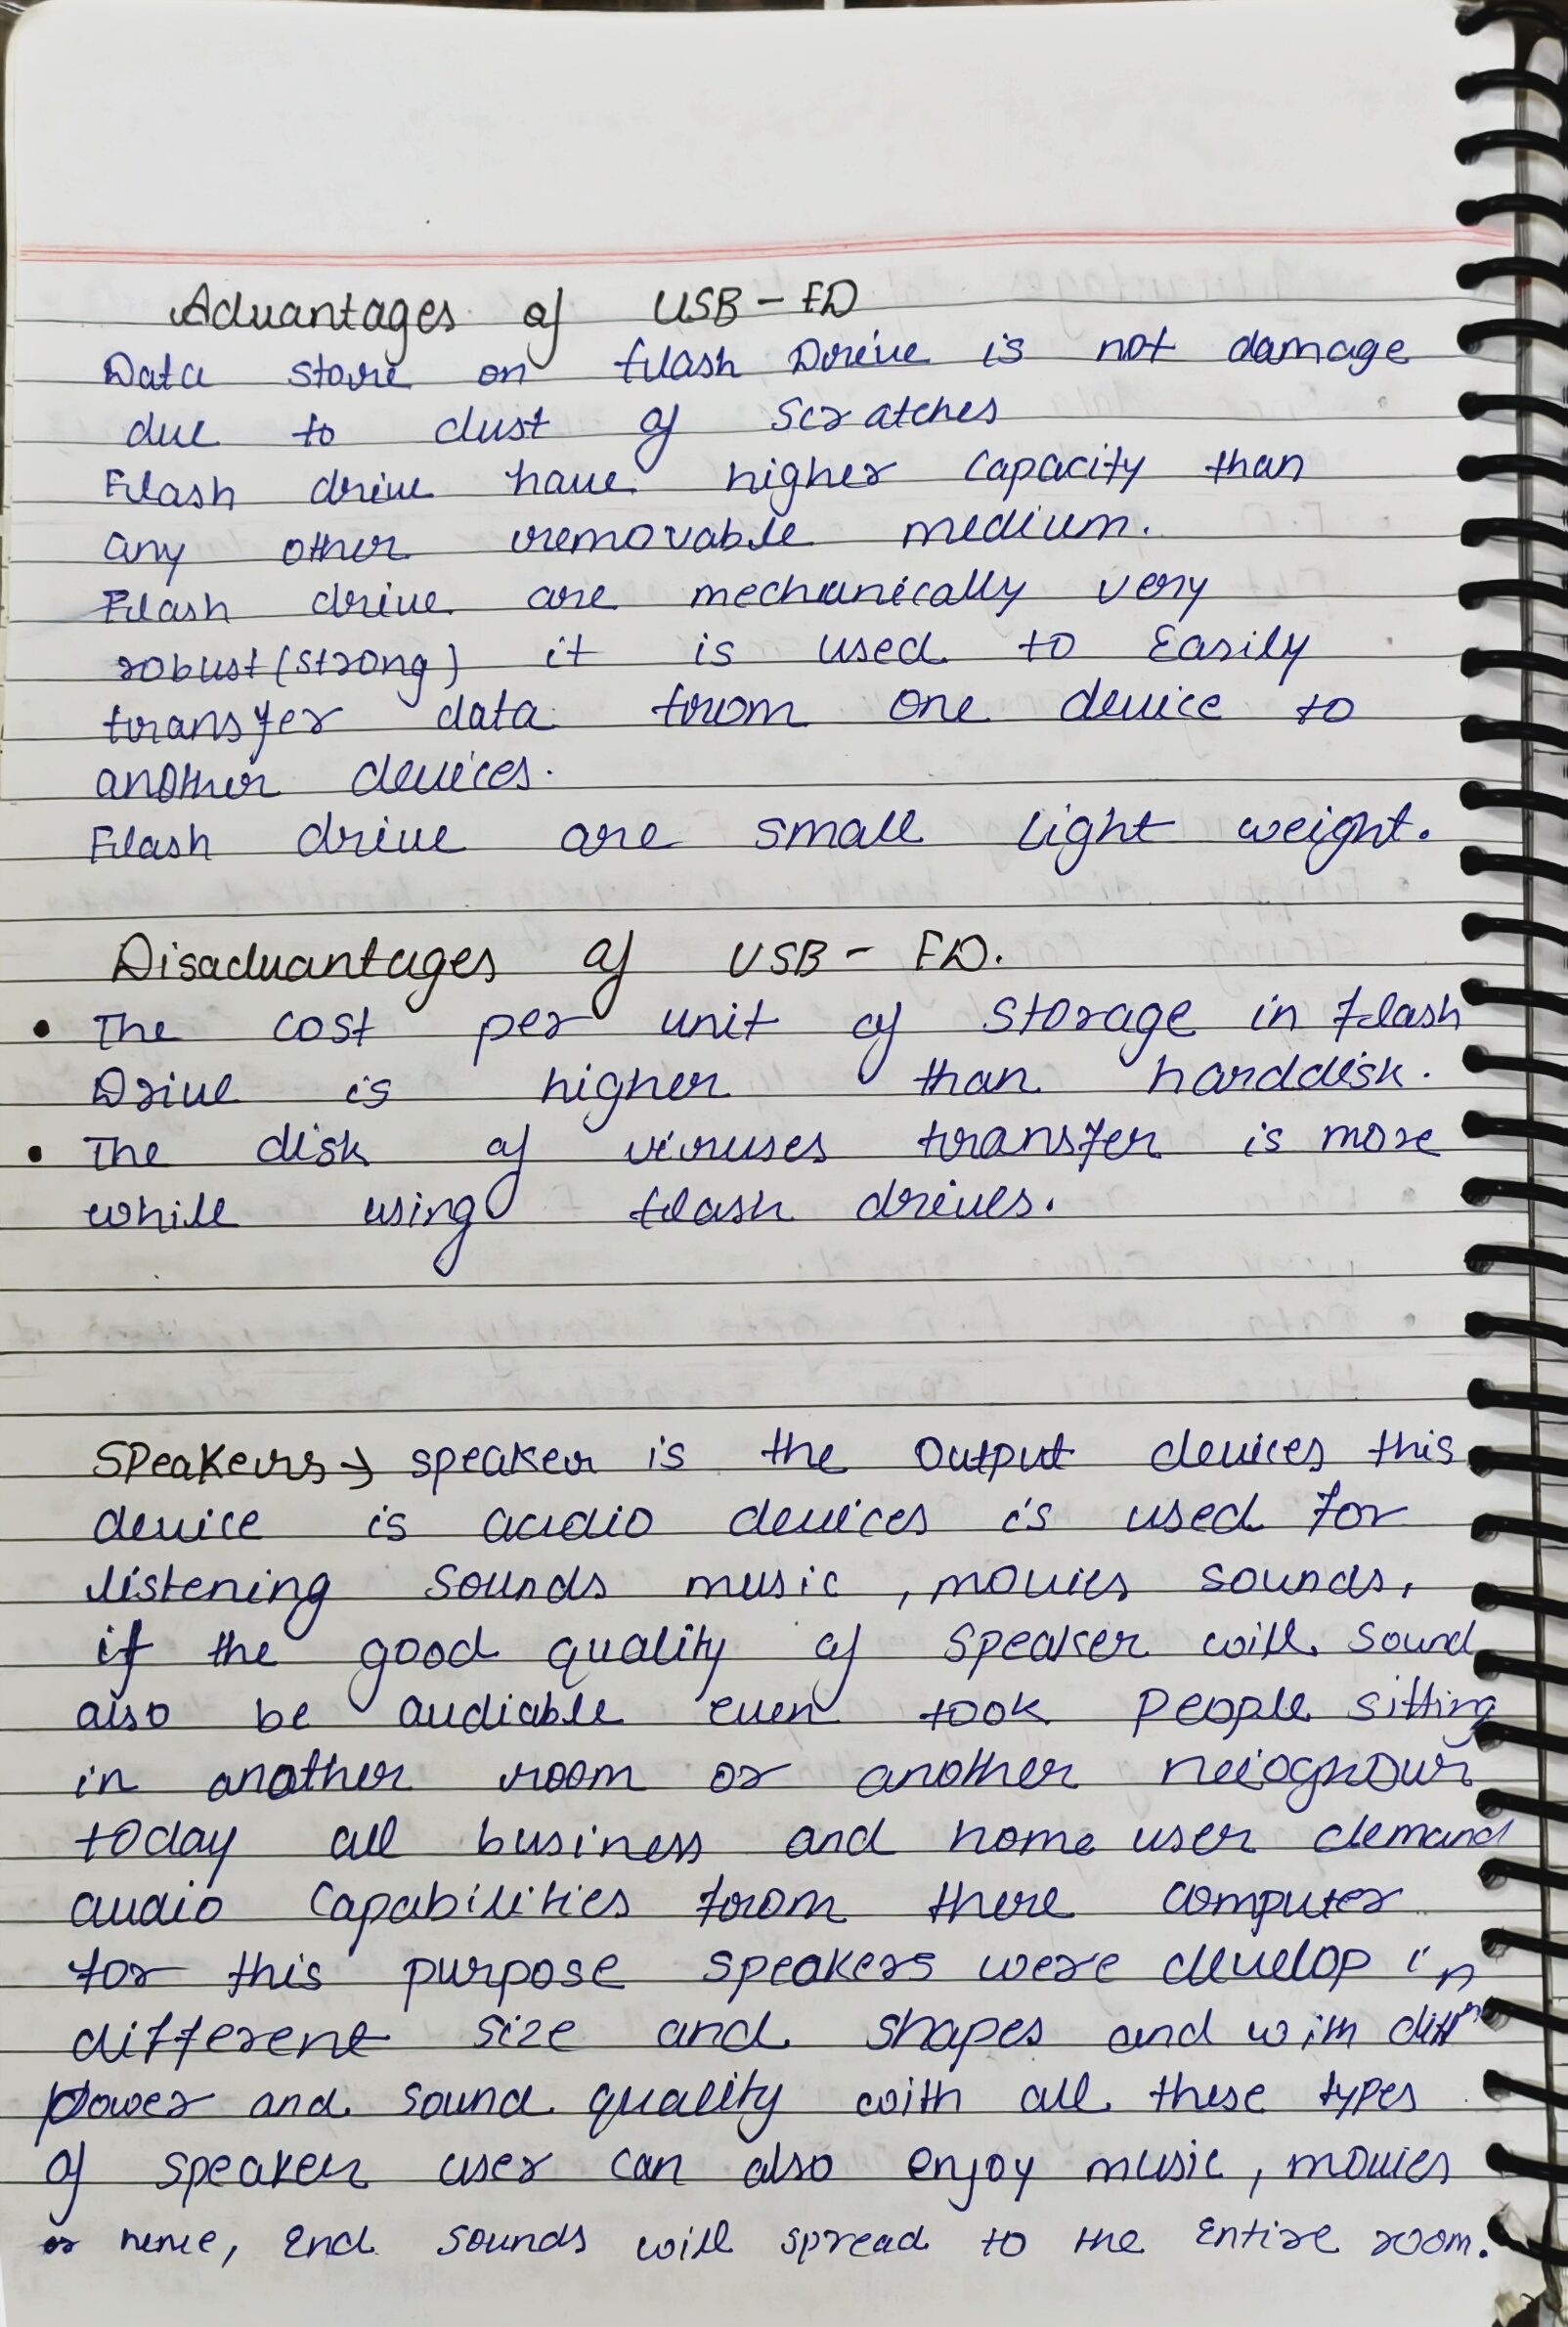 Advantages of USB - FD
Data store on flash Drive is not damage
due to dust of Scratches
Flash drive have higher capacity than
any other removable medium.
Flash drive are mechanically very
robust (strong) it is used to Easily
transfer data from one device to
another devices.
Flash drive are small light weight.
Disadvantages of USB - FD.
• The cost per unit of storage in flash
Drive is higher than harddisk.
• The disk of viruses transfer is more
while using flash drives.
Speakers → speaker is the output devices this
device is audio devices is used for
listening sounds music, movies sounds,
if the good quality of speaker will sound
also be audiable even took people sitting
in another room or another
today all business and home user demand
audio capabilities from there computer
for this purpose speakers were develop in
different size and shapes and with
power and sound quality with all these types
of speaker user can also enjoy music, movies
or End sounds will spread to the Entire room.